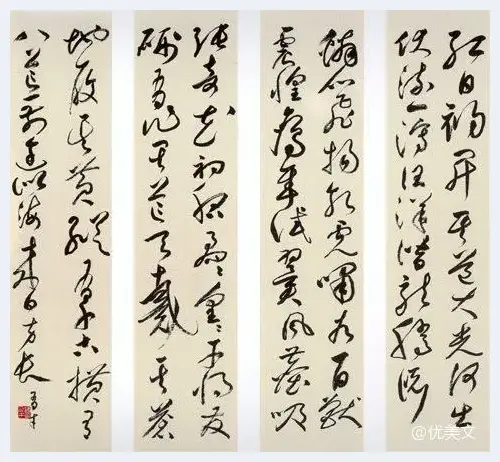 红日初升其道大光河出
伏流一泻汪洋潜龙腾渊
鳞爪飞扬乳虎啸谷百兽
震惶鹰隼试翼风尘吸
张奇花初胎矞矞皇皇干将发
硎有作其芒天戴其苍
地履其黄纵有千古横有
八荒前途似海来日方长
@优美文